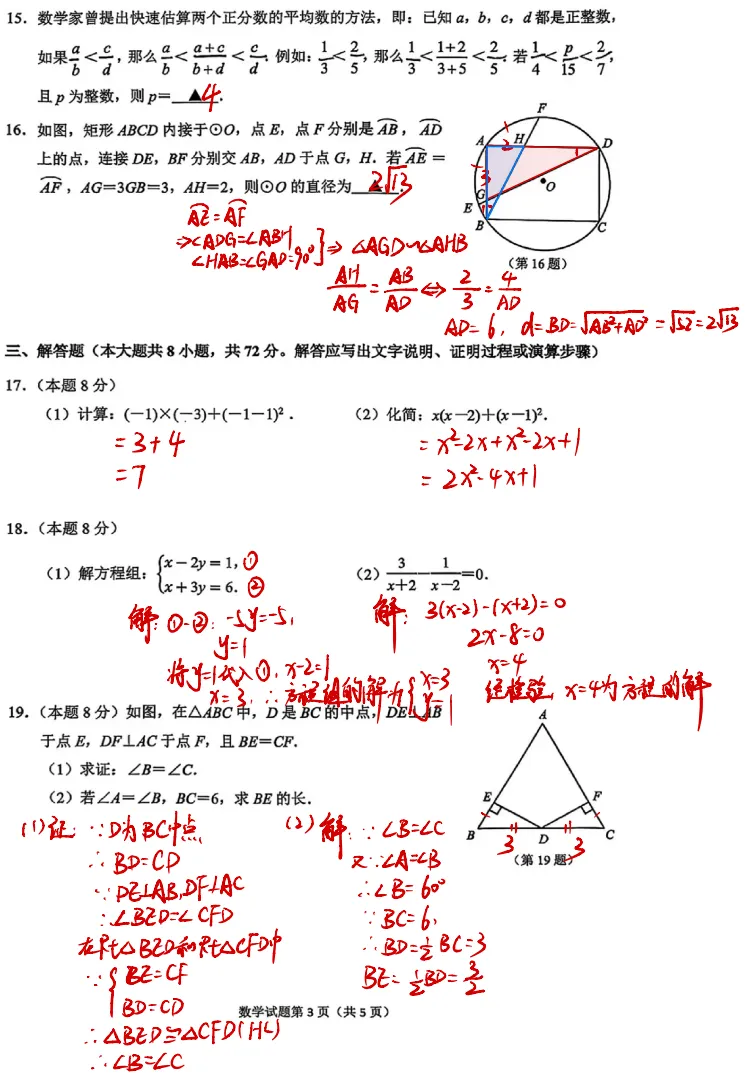 15．数学家曾提出快速估算两个正分数的平均数的方法，即：已知 a，b，c，d 都是正整数，
如果 a/b < c/d，那么 a/b < (a+c)/(b+d) < c/d. 例如：1/3 < 2/5，那么 1/3 < (1+2)/(3+5) < 2/5. 若 1/4 < p/15 < 2/7，
且 p 为整数，则 p= ▲ 4 .
16．如图，矩形 ABCD 内接于⊙O，点 E，点 F 分别是 ⌒AB，⌒AD
上的点，连接 DE，BF 分别交 AB，AD 于点 G，H．若 ⌒AE =
⌒AF，AG=3GB=3，AH=2，则⊙O 的直径为 ▲ 2√13 .
F
A H D
2 1
3
G
E 1
O
B C
（第 16 题）
⌒AE=⌒AF
⇒∠ADG=∠ABH
∠HAB=∠GAD=90° ] ⇒ △AGD∽△AHB
AH/AG = AB/AD ⇔ 2/3 = 4/AD
AD=6, d=BD=√(AB²+AD²) =√52=2√13
三、解答题（本大题共 8 小题，共 72 分。解答应写出文字说明、证明过程或演算步骤）
17．（本题 8 分）
（1）计算：(－1)×(－3)+(－1－1)²．
=3+4
=7
（2）化简：x(x－2)+(x－1)².
=x²-2x+x²-2x+1
= 2x²-4x+1
18．（本题 8 分）
（1）解方程组：{ x－2y=1, ①
x+3y=6. ②
解: ①-②: -5y=-5,
y=1
将y=1代入①, x-2=1
x=3, ∴方程组的解为{ x=3
y=1
（2）3/(x+2) － 1/(x－2) =0.
解: 3(x-2)-(x+2)=0
2x-8=0
x=4
经检验, x=4为方程的解
19．（本题 8 分）如图，在△ABC 中，D 是 BC 的中点，DE⊥AB
于点 E，DF⊥AC 于点 F，且 BE=CF.
（1）求证：∠B=∠C.
（2）若∠A=∠B，BC=6，求 BE 的长.
A
E F
B 3 D 3 C
（第 19 题）
(1)证: ∵D为BC中点
∴BD=CD
∵DE⊥AB,DF⊥AC
∴∠BED=∠CFD
在Rt△BED和Rt△CFD中
∵{ BE=CF
BD=CD
∴△BED≌△CFD(HL)
∴∠B=∠C
(2) 解: ∵∠B=∠C
又∵∠A=∠B
∴∠B=60°
∵BC=6,
∴BD=1/2 BC=3
BE=1/2 BD=3/2
数学试题第 3 页（共 5 页）